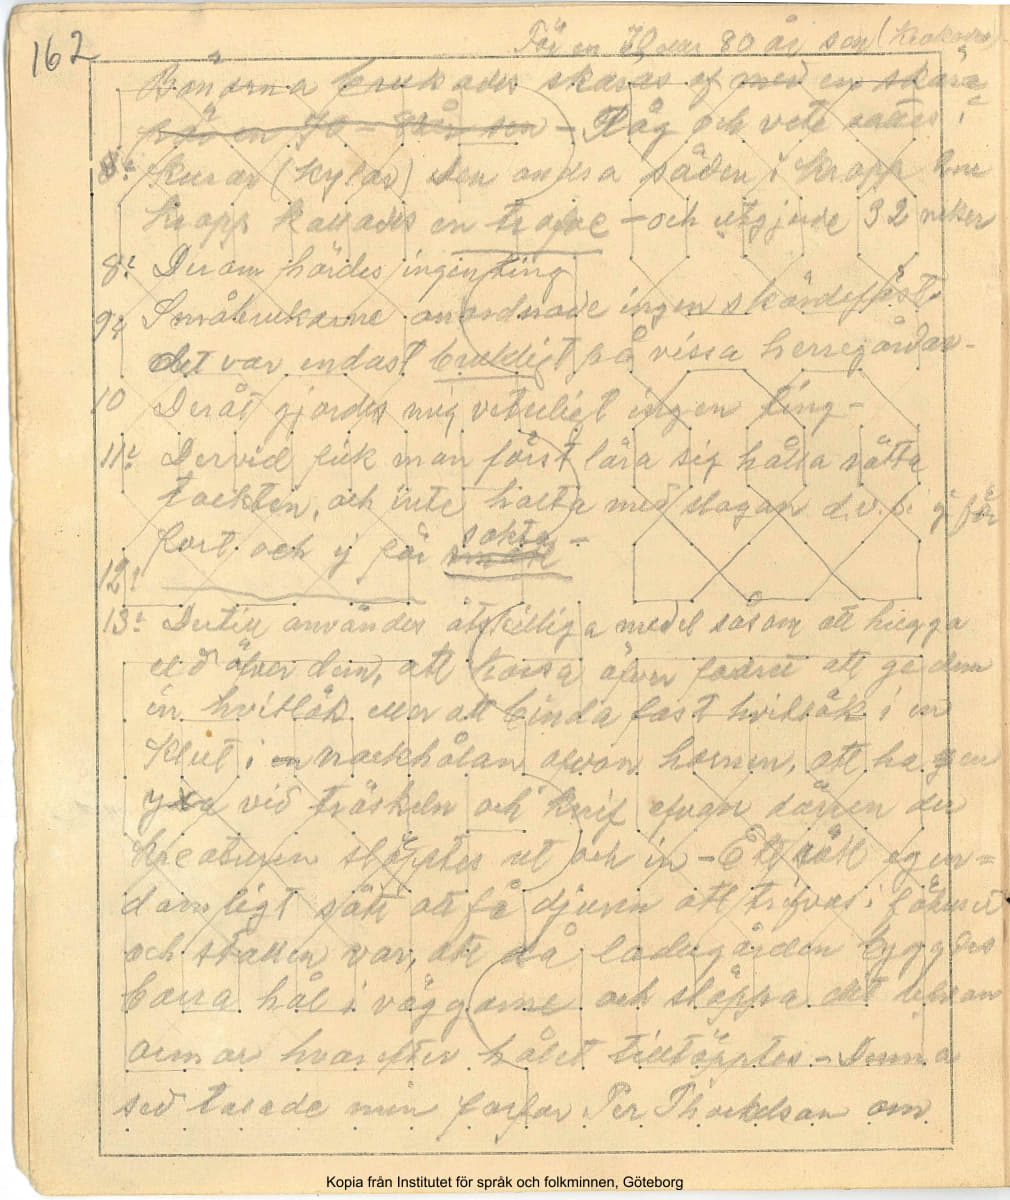 162
För en 70 eller 80 år sen (krokodes)
Bönorna brukades skäras af med en skära
för en 70 - 80 år sen - Råg och vete sattes i
8: kurar (kylar) den andra säden i kropp Em
kropp kallades en trafve - och utgjorde 32 neker
8: Derom hördes ingenting
9: Småbrukarne anordnade ingen skördefest.
det var endast brukligt på vissa herregårdar -
10 Deråt gjordes mig veterligt ingen ting -
11: Dervid fick man först lära sig hålla rätta
tackten, och inte halta med slagan d.v.s. ej för
fort och ej för sakta -
12:
13: Dertill användes åtskilliga medel såsom att hugga
eld öfver dem, att korsa öfver fodret att ge dem
in hvitlök eller att binda fast hvitlök i en
klut i nackhålan ofvan hornen, att ha en
yxa vid tröskeln och knif ofvan dörren der
kreaturen släpptes ut och in - Ett sätt egen=
domligt sätt att få djuren att trifvas i fähuset
och stallen var, att då ladugården byggdes
borra hål i väggarne och släppa dit lefvan
ormar hvarefter hålet tilltäpptes - Denna
sed talade min farfar Per Thorkelsson om
Kopia från Institutet för språk och folkminnen, Göteborg